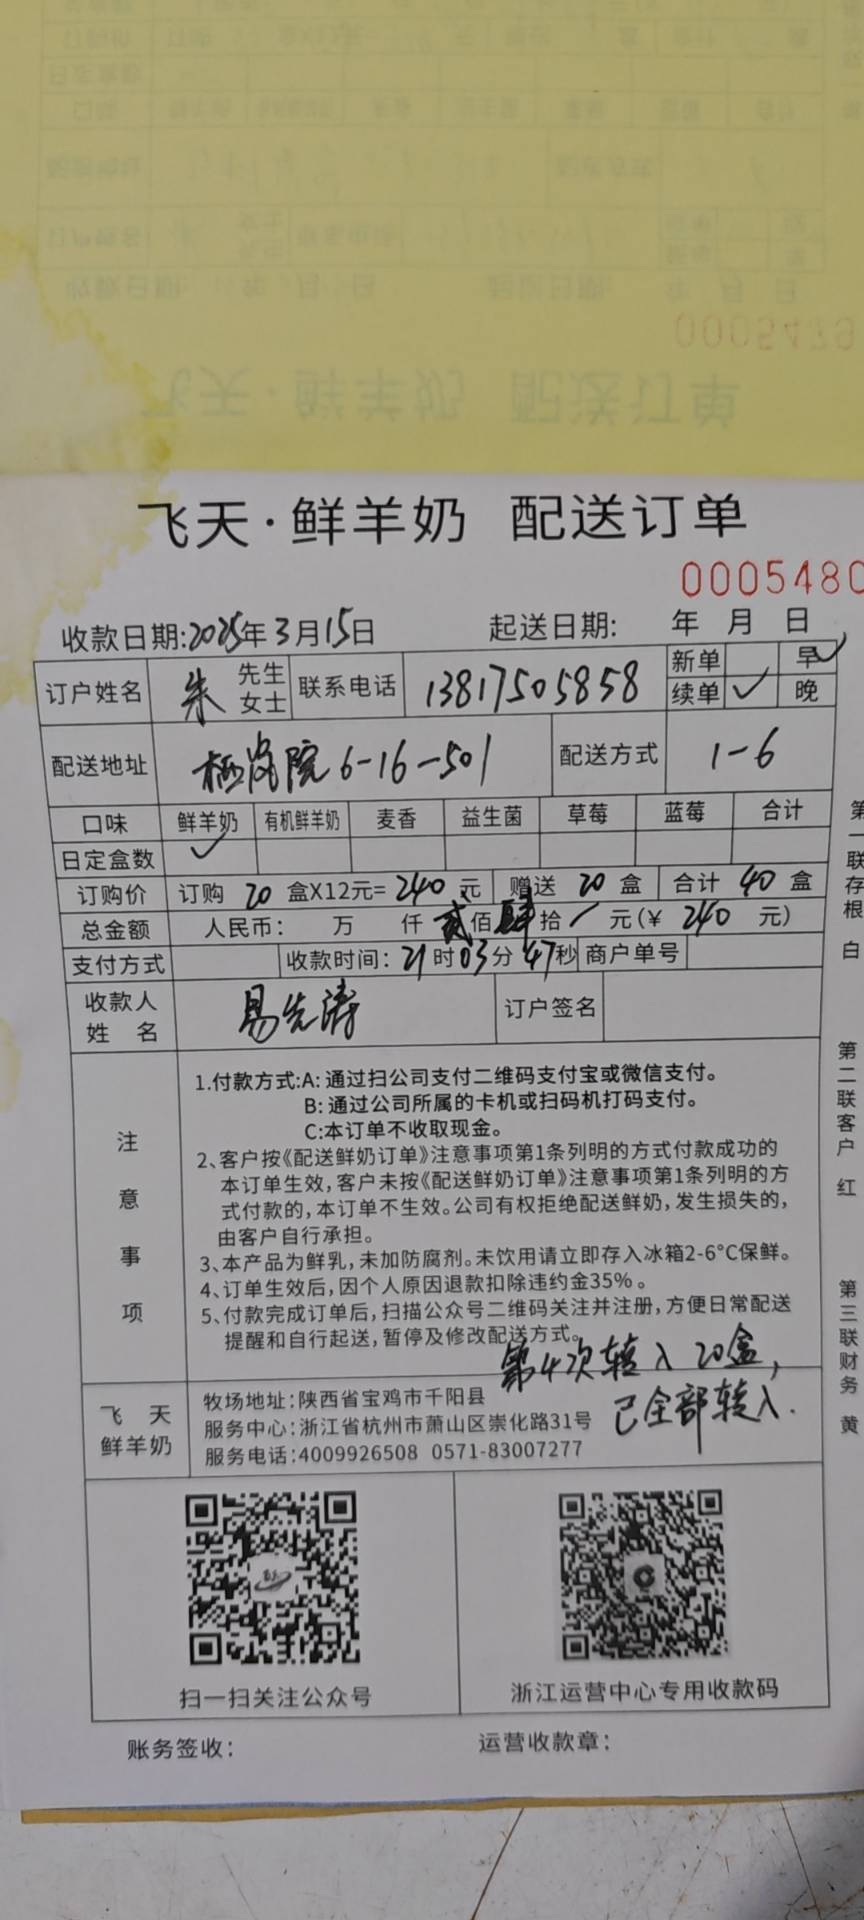 0005479
飞天·鲜羊奶 配送订单
0005480
收款日期:2025年3月15日 起送日期: 年 月 日
订户姓名 朱 先生 女士 联系电话 13817505858 新单 早✓ 续单 ✓ 晚
配送地址 6-16-501 配送方式 1-6
口味 鲜羊奶 有机鲜羊奶 麦香 益生菌 草莓 蓝莓 合计
日定盒数 ✓
订购价 订购 20 盒X12元= 240 元 赠送 20 盒 合计 40 盒
总金额 人民币: 万 仟 贰佰肆拾 / 元(¥ 240 元)
支付方式 收款时间: 21时03分47秒 商户单号
收款人姓名 易先涛 订户签名
注意事项
1.付款方式:A: 通过扫公司支付二维码支付宝或微信支付。
B: 通过公司所属的卡机或扫码机打码支付。
C:本订单不收取现金。
2、客户按《配送鲜奶订单》注意事项第1条列明的方式付款成功的
本订单生效,客户未按《配送鲜奶订单》注意事项第1条列明的方
式付款的,本订单不生效。公司有权拒绝配送鲜奶,发生损失的,
由客户自行承担。
3、本产品为鲜乳,未加防腐剂。未饮用请立即存入冰箱2-6°C保鲜。
4、订单生效后,因个人原因退款扣除违约金35%。
5、付款完成订单后,扫描公众号二维码关注并注册,方便日常配送
提醒和自行起送,暂停及修改配送方式。
第4次转入20盒,
已全部转入.
飞天鲜羊奶
牧场地址:陕西省宝鸡市千阳县
服务中心:浙江省杭州市萧山区崇化路31号
服务电话:4009926508 0571-83007277
扫一扫关注公众号 浙江运营中心专用收款码
账务签收: 运营收款章:
第一联存根 白
第二联客户 红
第三联财务 黄